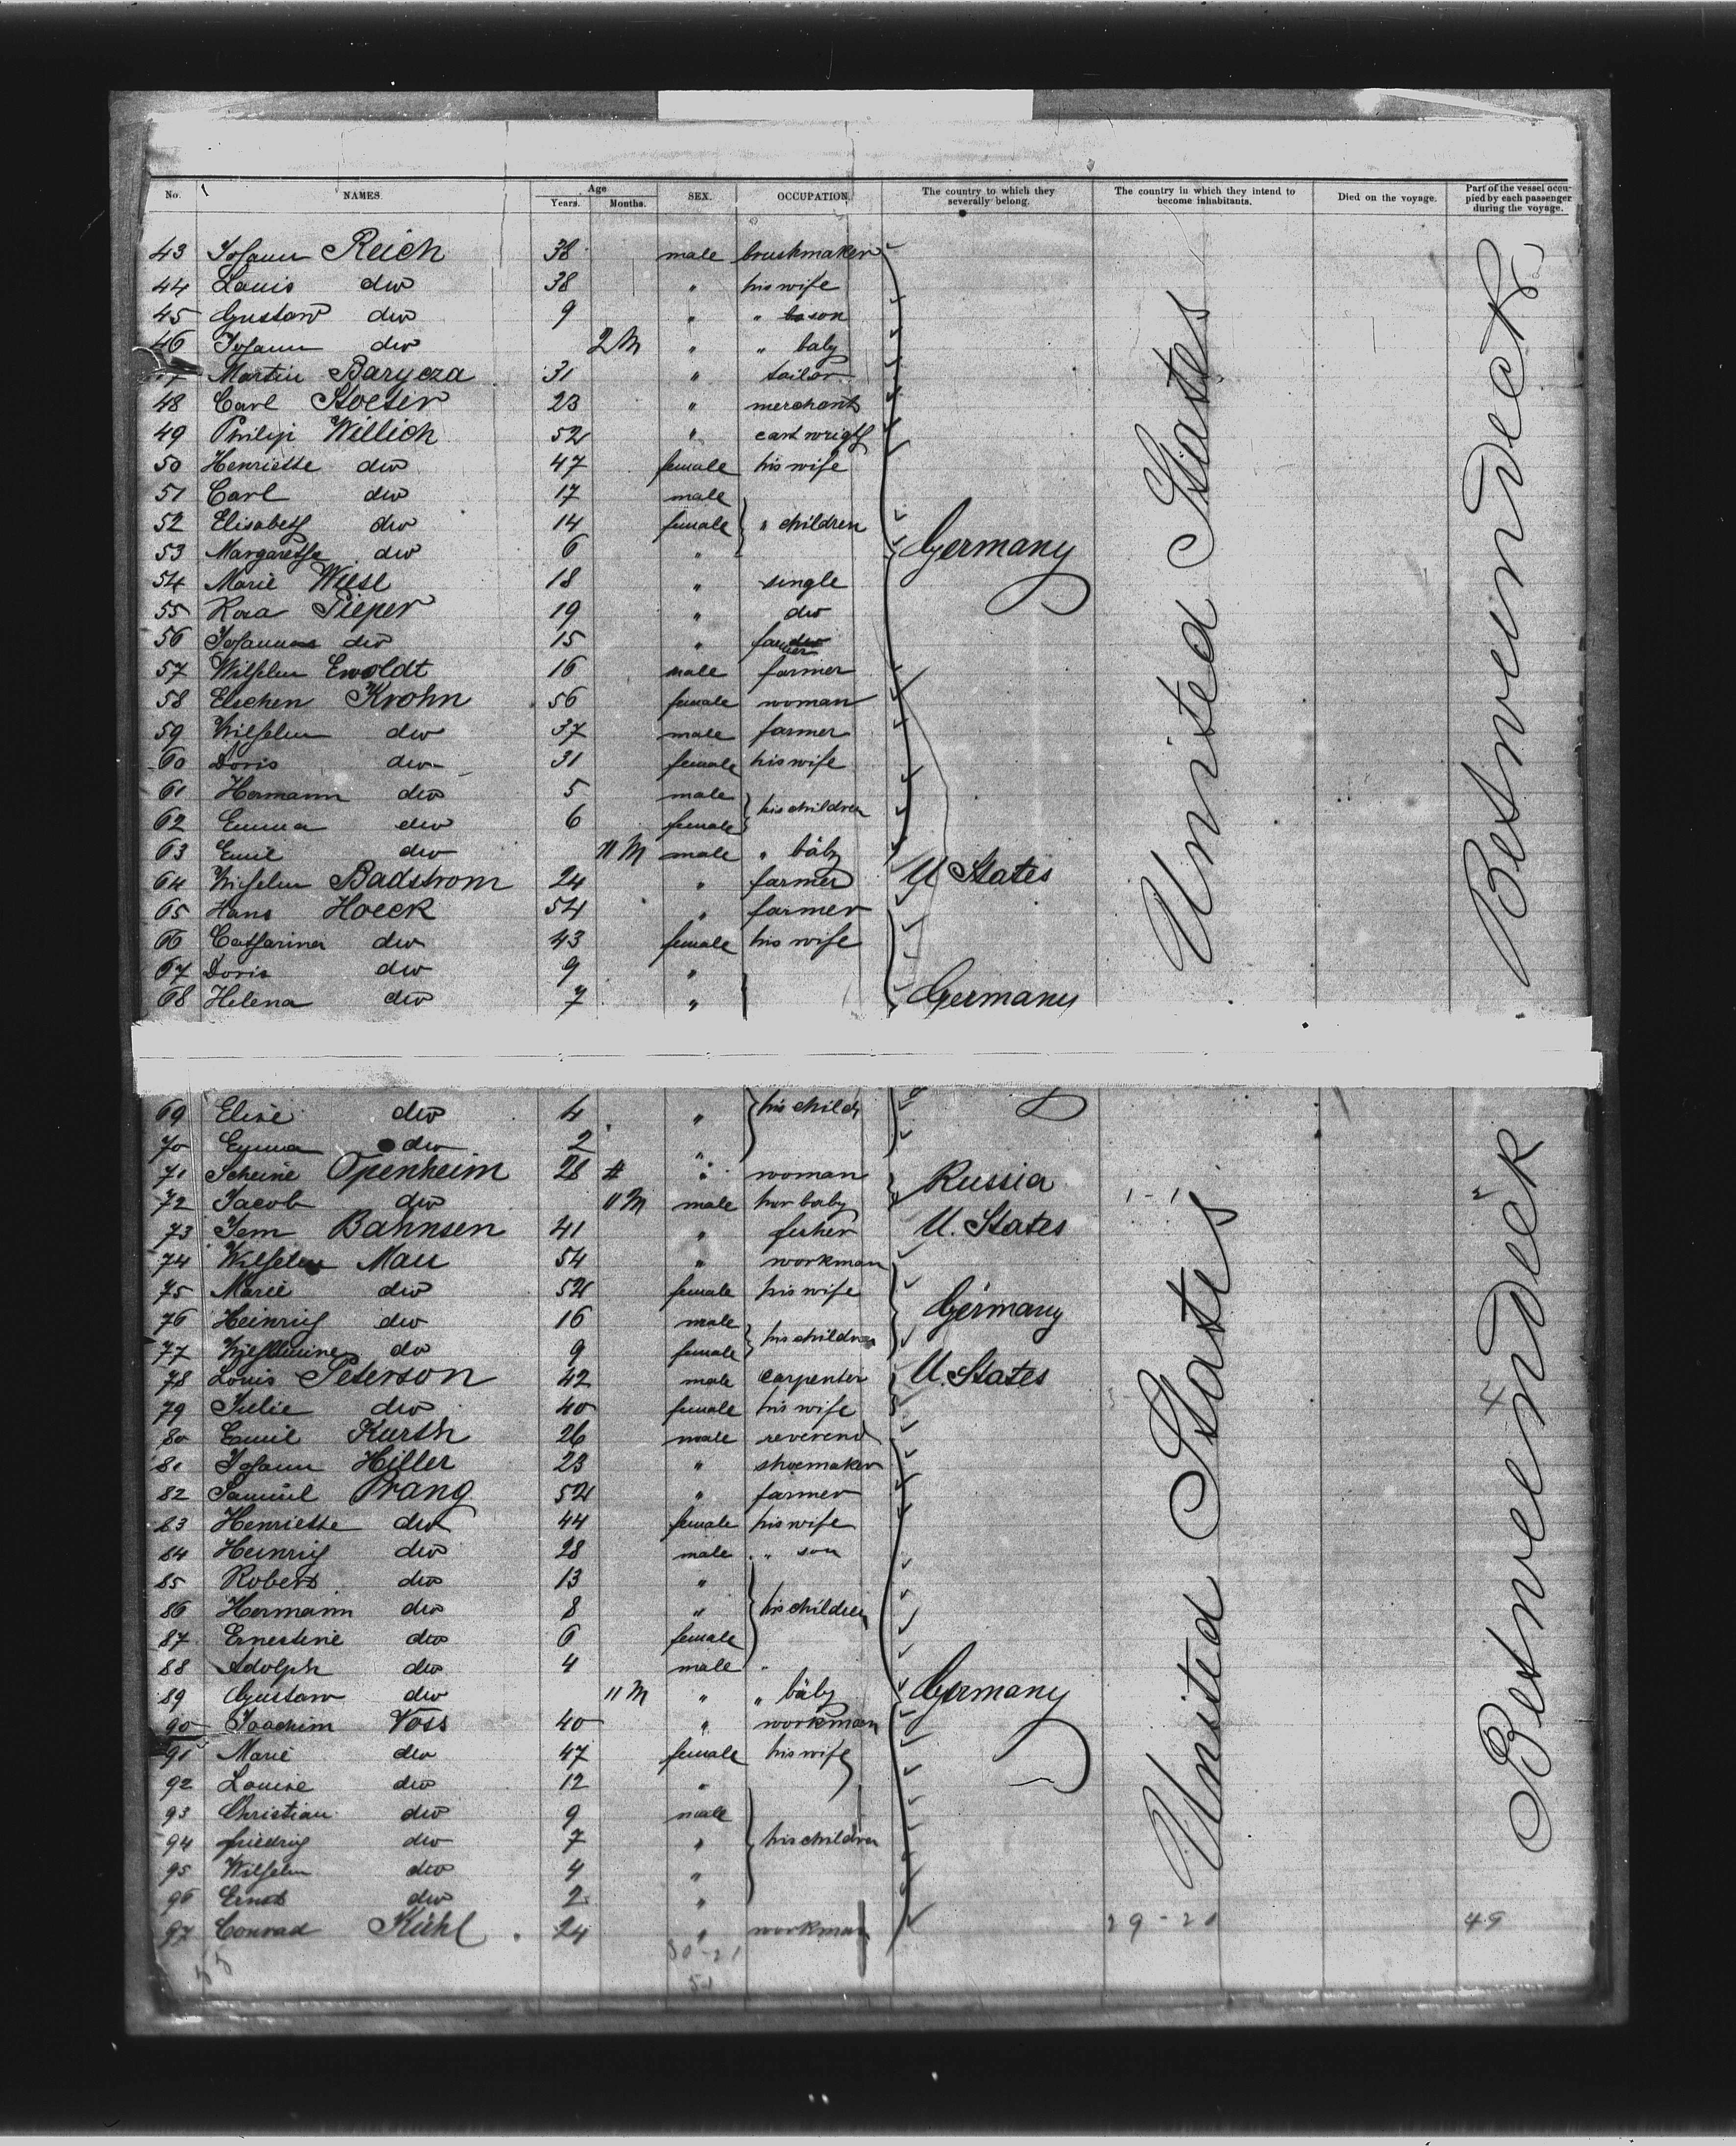 No. NAMES. Age Years. Months. SEX. OCCUPATION. The country to which they severally belong. The country in which they intend to become inhabitants. Died on the voyage. Part of the vessel occupied by each passenger during the voyage.
43 Johann Reich 38 male brushmaker
44 Louis do 38 " his wife
45 Gustav do 9 " " son
46 Johann do 2 M " " baby
Martin Barycza 31 " tailor
48 Carl Stoeser 23 " merchant
49 Philip Willich 52 " cartwright
50 Henriette do 47 female his wife
51 Carl do 17 male
52 Elisabeth do 14 female " children
53 Margarethe do 6 " Germany
54 Marie Wiese 18 " single
55 Rosa Pieper 19 " do
56 Johannes do 15 " farmer
57 Wilhelm Ewoldt 16 male farmer
58 Elschen Krohn 56 female woman
59 Wilhelm do 37 male farmer
60 Doris do 31 female his wife
61 Hermann do 5 male his children
62 Emma do 6 female
63 Emil do 11 M male " baby
64 Wilhelm Badstrom 24 " farmer U States
65 Hans Hoeck 54 " farmer
66 Catharina do 43 female his wife
67 Doris do 9 "
68 Helena do 7 " Germany
United States
Between Deck
69 Elise do 4 " his child
70 Emma do 2 "
71 Scheine Openheim 28 " woman Russia
72 Jacob do 11 M male her baby
73 Jem Bahnsen 41 " fisher U. States
74 Wilhelm Mau 54 " workman
75 Marie do 52 female his wife
76 Heinrich do 16 male his children Germany
77 Wilhelmine do 9 female
78 Louis Peterson 42 male carpenter U. States
79 Julie do 40 female his wife
80 Emil Kurth 26 male reverend
81 Johann Hiller 23 " shoemaker
82 Samuel Prang 52 " farmer
83 Henriette do 44 female his wife
84 Heinrich do 28 male " son
85 Robert do 13 "
86 Hermann do 8 " his children
87 Ernestine do 6 female
88 Adolph do 4 male
89 Gustav do 11 M " " baby Germany
90 Joachim Voss 40 " workman
91 Marie do 47 female his wife
92 Louise do 12 "
93 Christian do 9 male
94 friedrich do 7 " his children
95 Wilhelm do 4 "
96 Ernst do 2 "
97 Conrad Kühl 24 " workman
United States
Between Deck
29-20 49
30-21
51